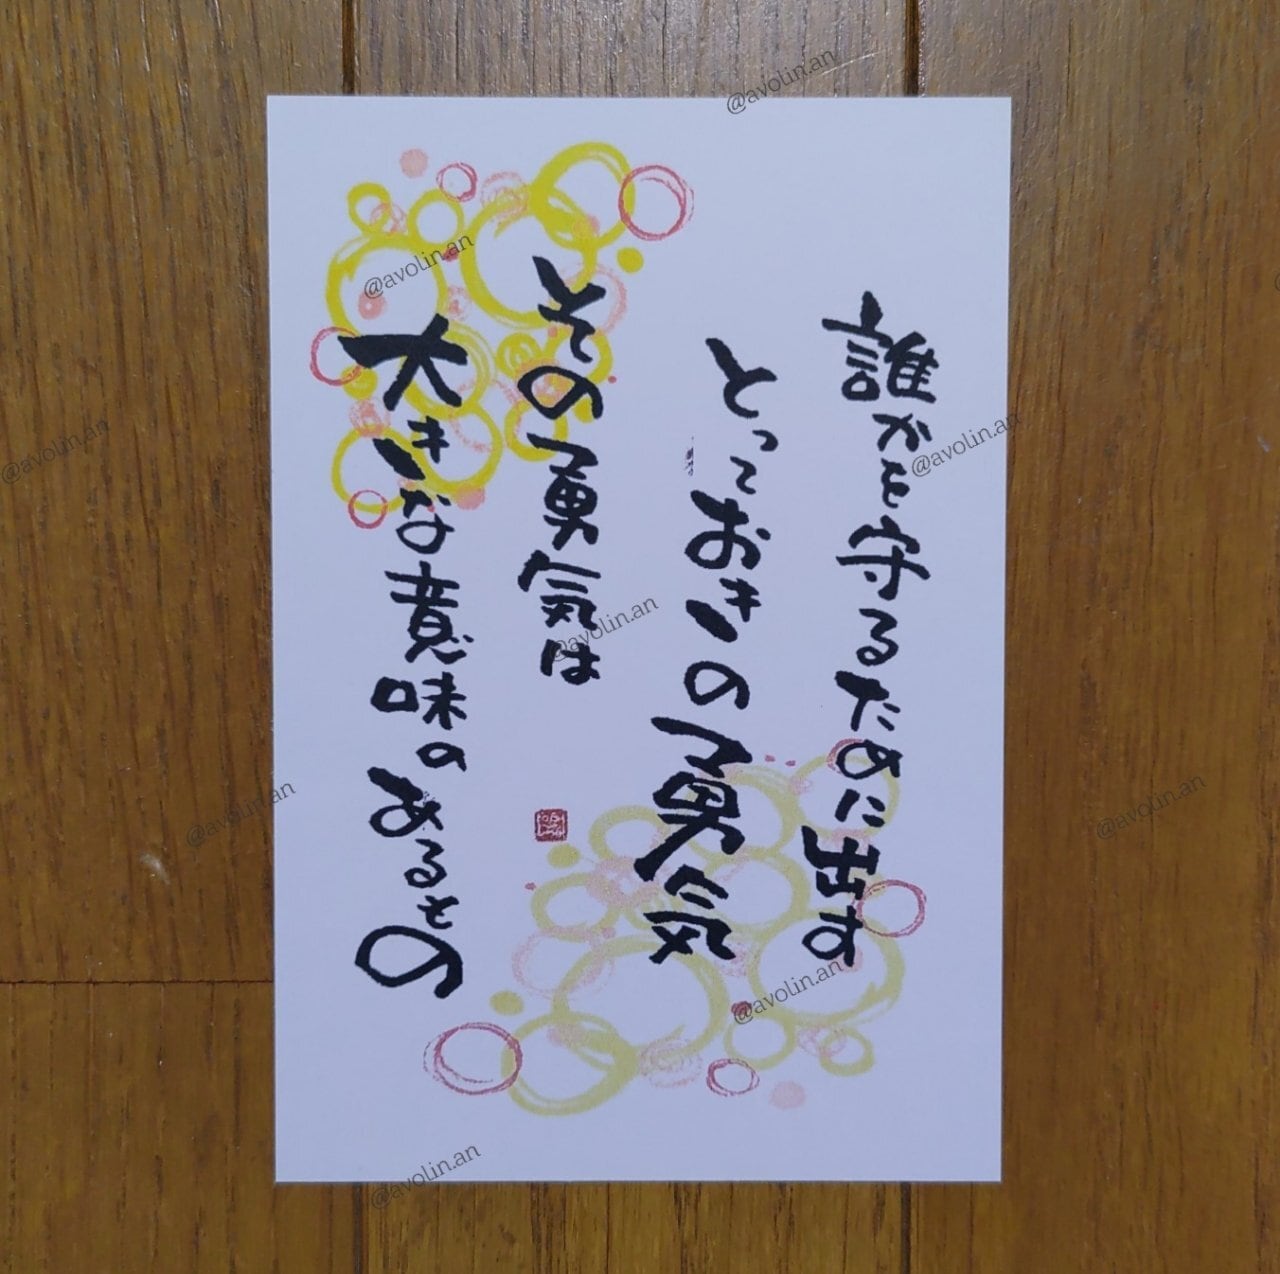 誰かを守るために出す
とっておきの勇気
その勇気は
大きな意味のあるもの
@avolin.an
@avolin.an
@avolin.an
@avolin.an
@avolin.an
@avolin.an
@avolin.an
@avolin.an
@avolin.an